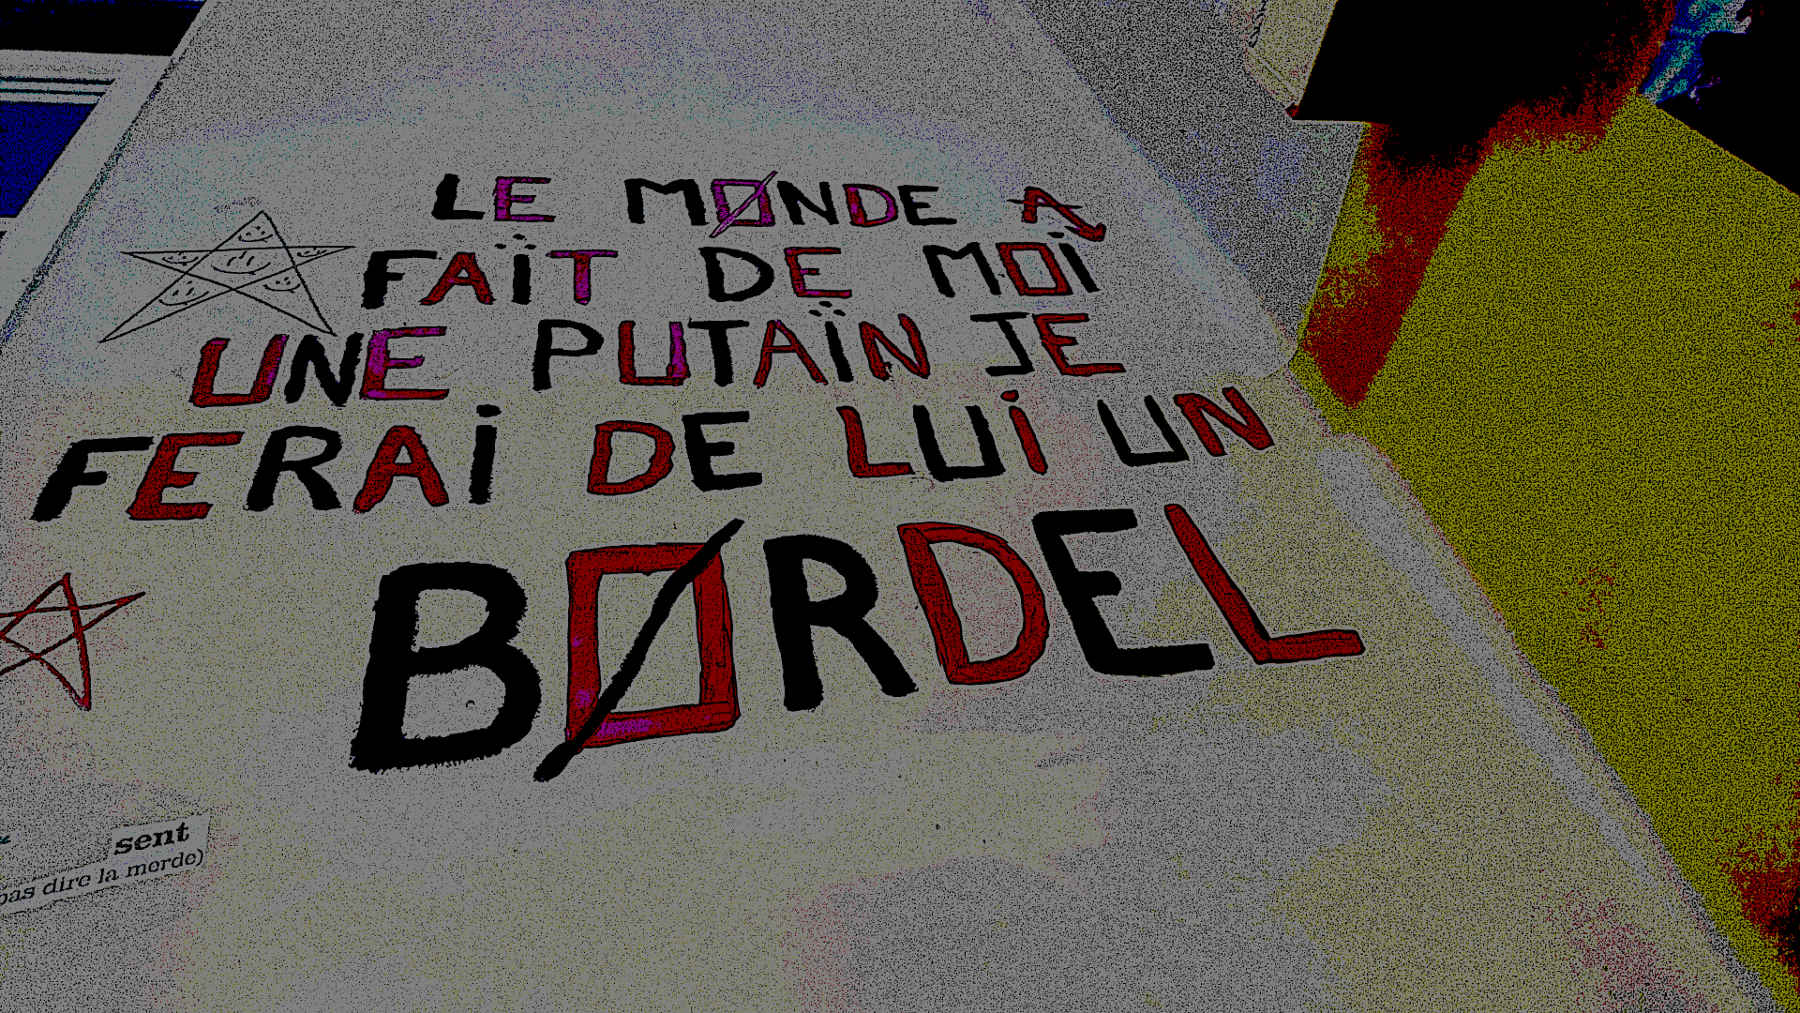 LE MØNDE A
FAÏT DE MOÏ
UNE PUTAÏN JE
FERAi DE LUi UN
BØRDEL
sent
pas dire la merde)